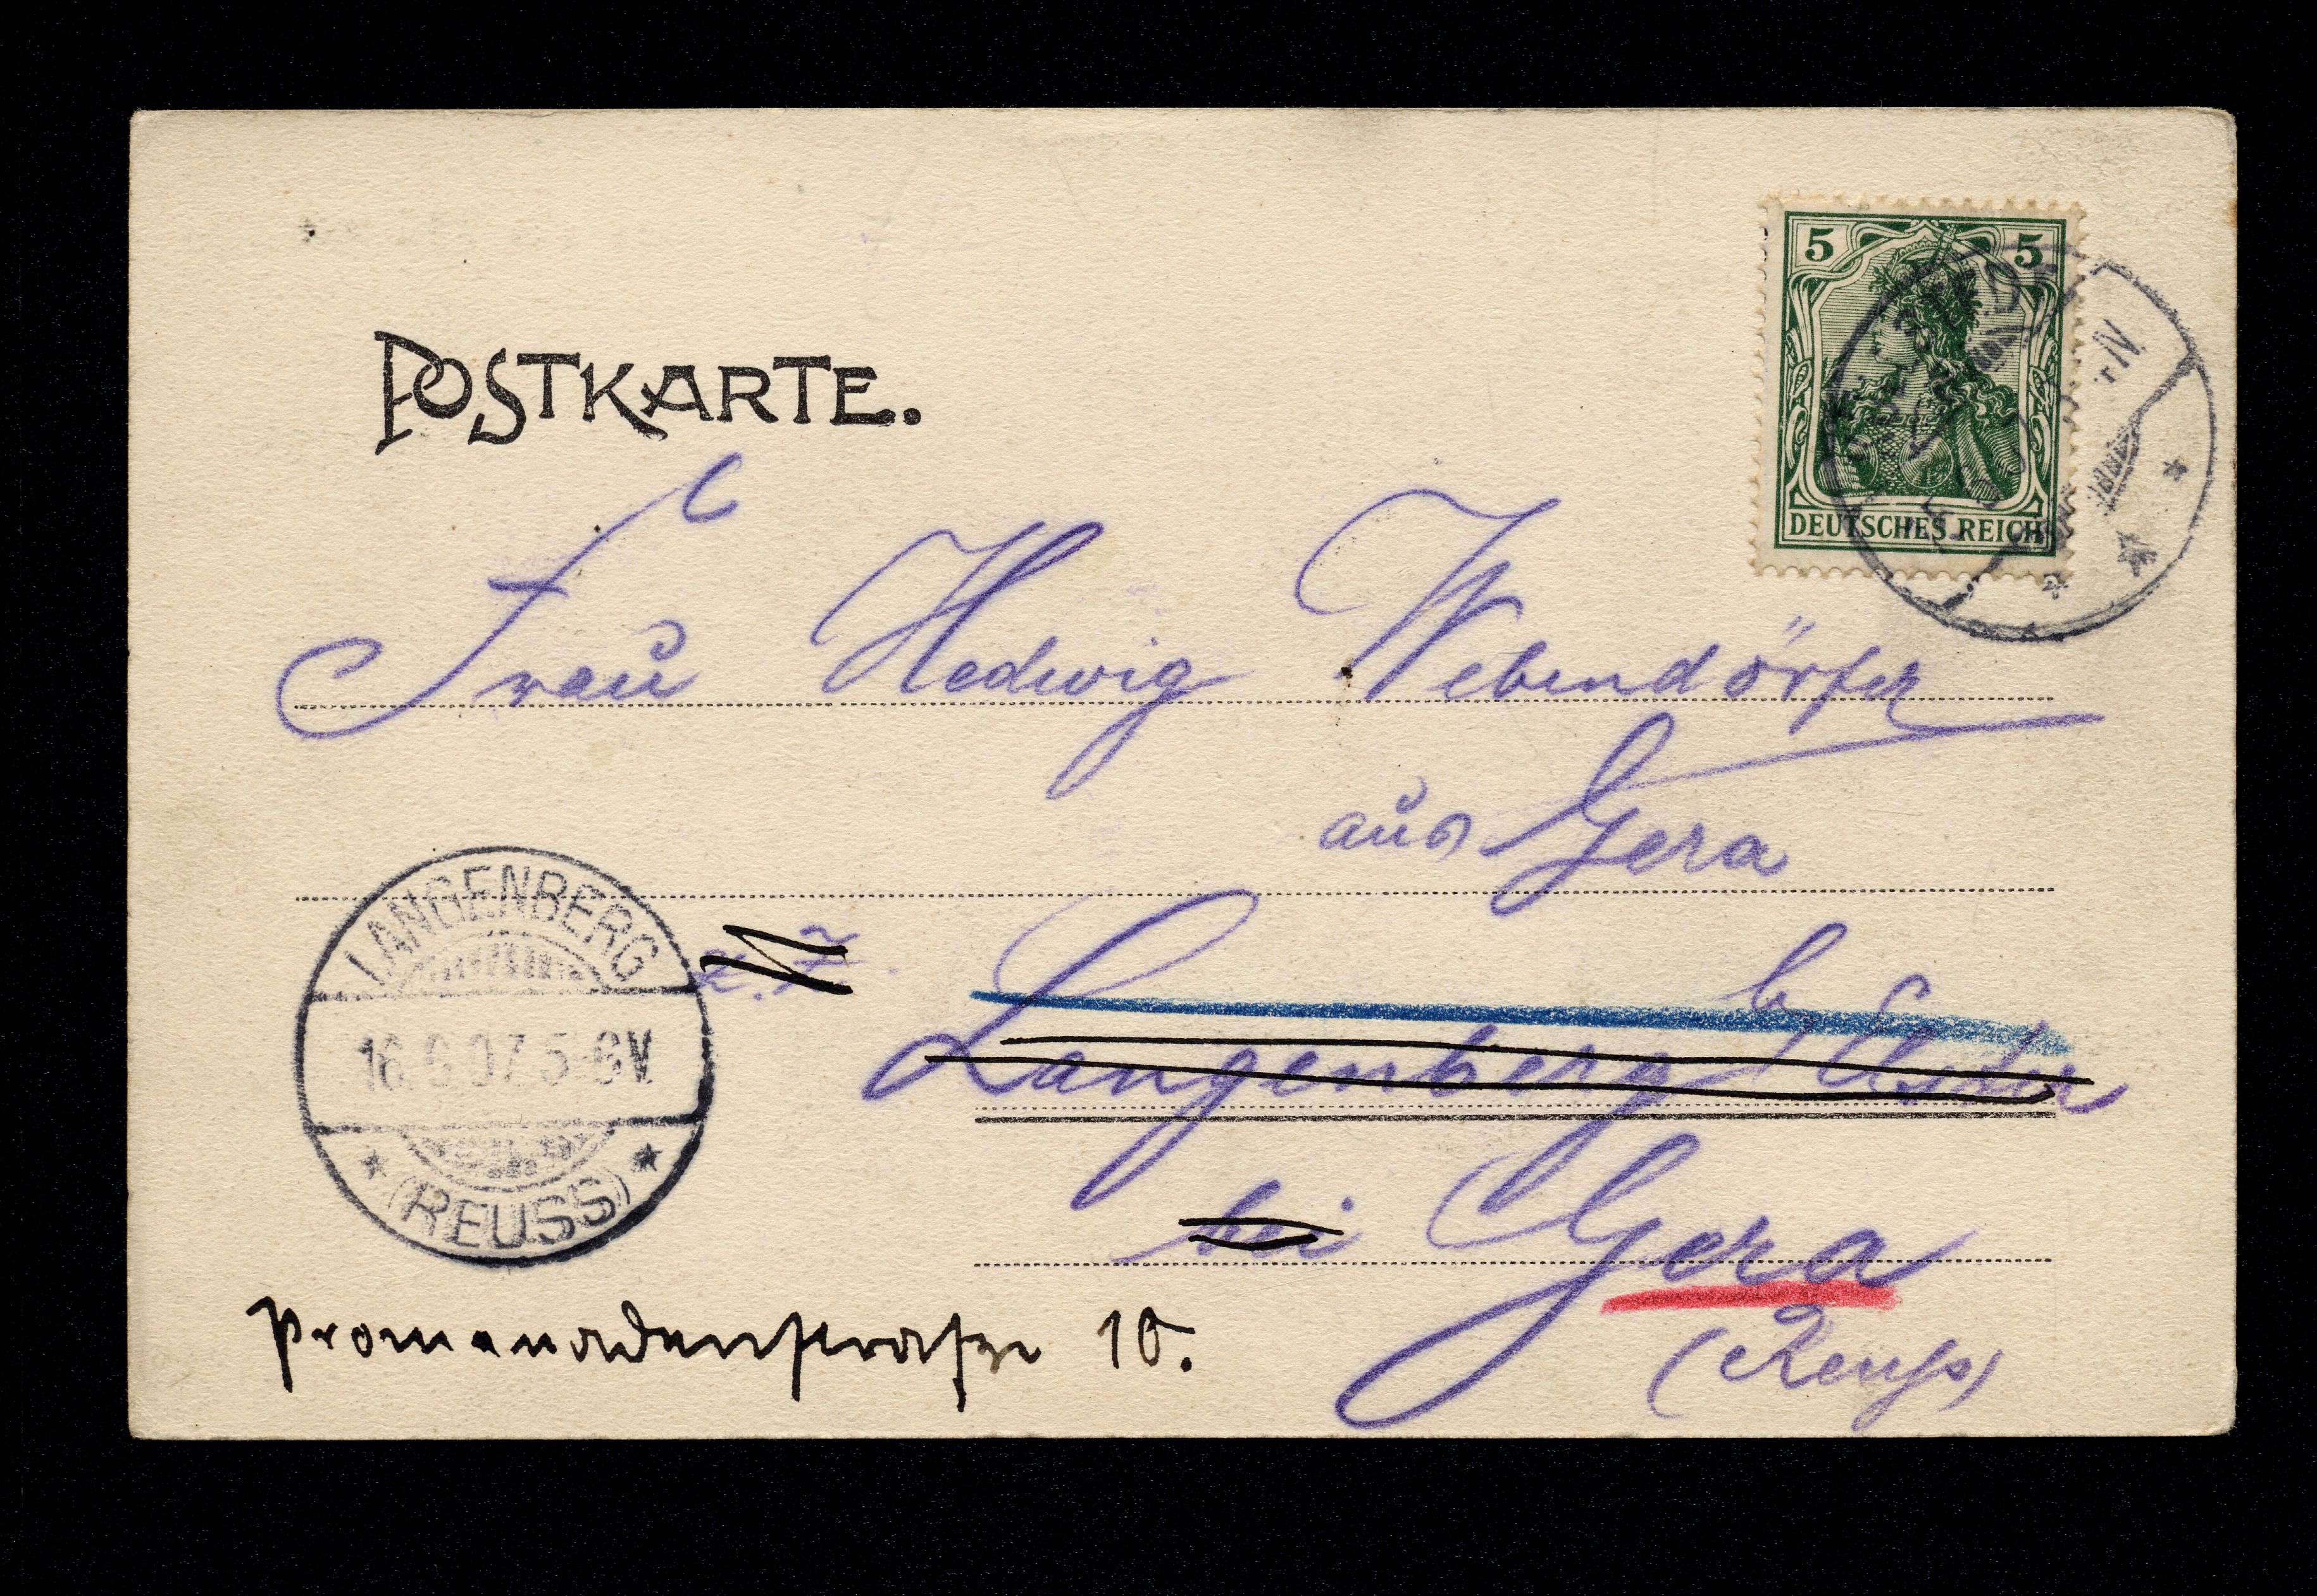 POSTKARTE.
5 5
DEUTSCHES REICH
Frau Hedwig Webendörfer
aus Gera
z. Z.
Langenberg b/ Elster
bei Gera
(Reuß)
LANGENBERG
16.6.07. 5-6V
(REUSS)
Promenadenstraße 10.